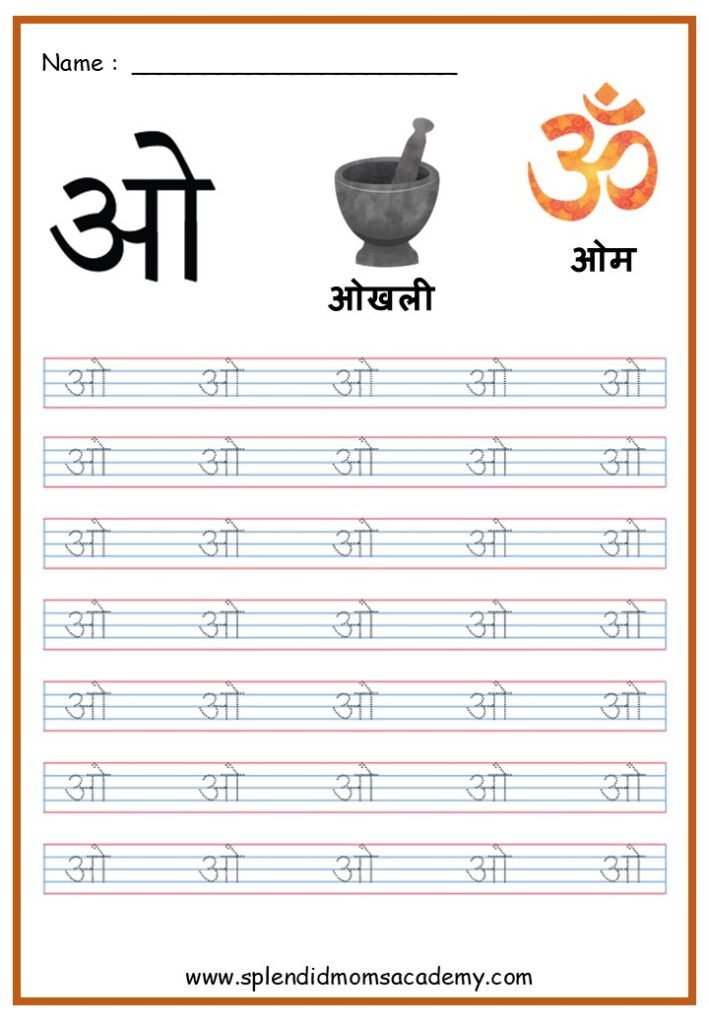 Name : ______________________
ओ
ओखली
ओम
ओ ओ ओ ओ ओ
ओ ओ ओ ओ ओ
ओ ओ ओ ओ ओ
ओ ओ ओ ओ ओ
ओ ओ ओ ओ ओ
ओ ओ ओ ओ ओ
ओ ओ ओ ओ ओ
www.splendidmomsacademy.com